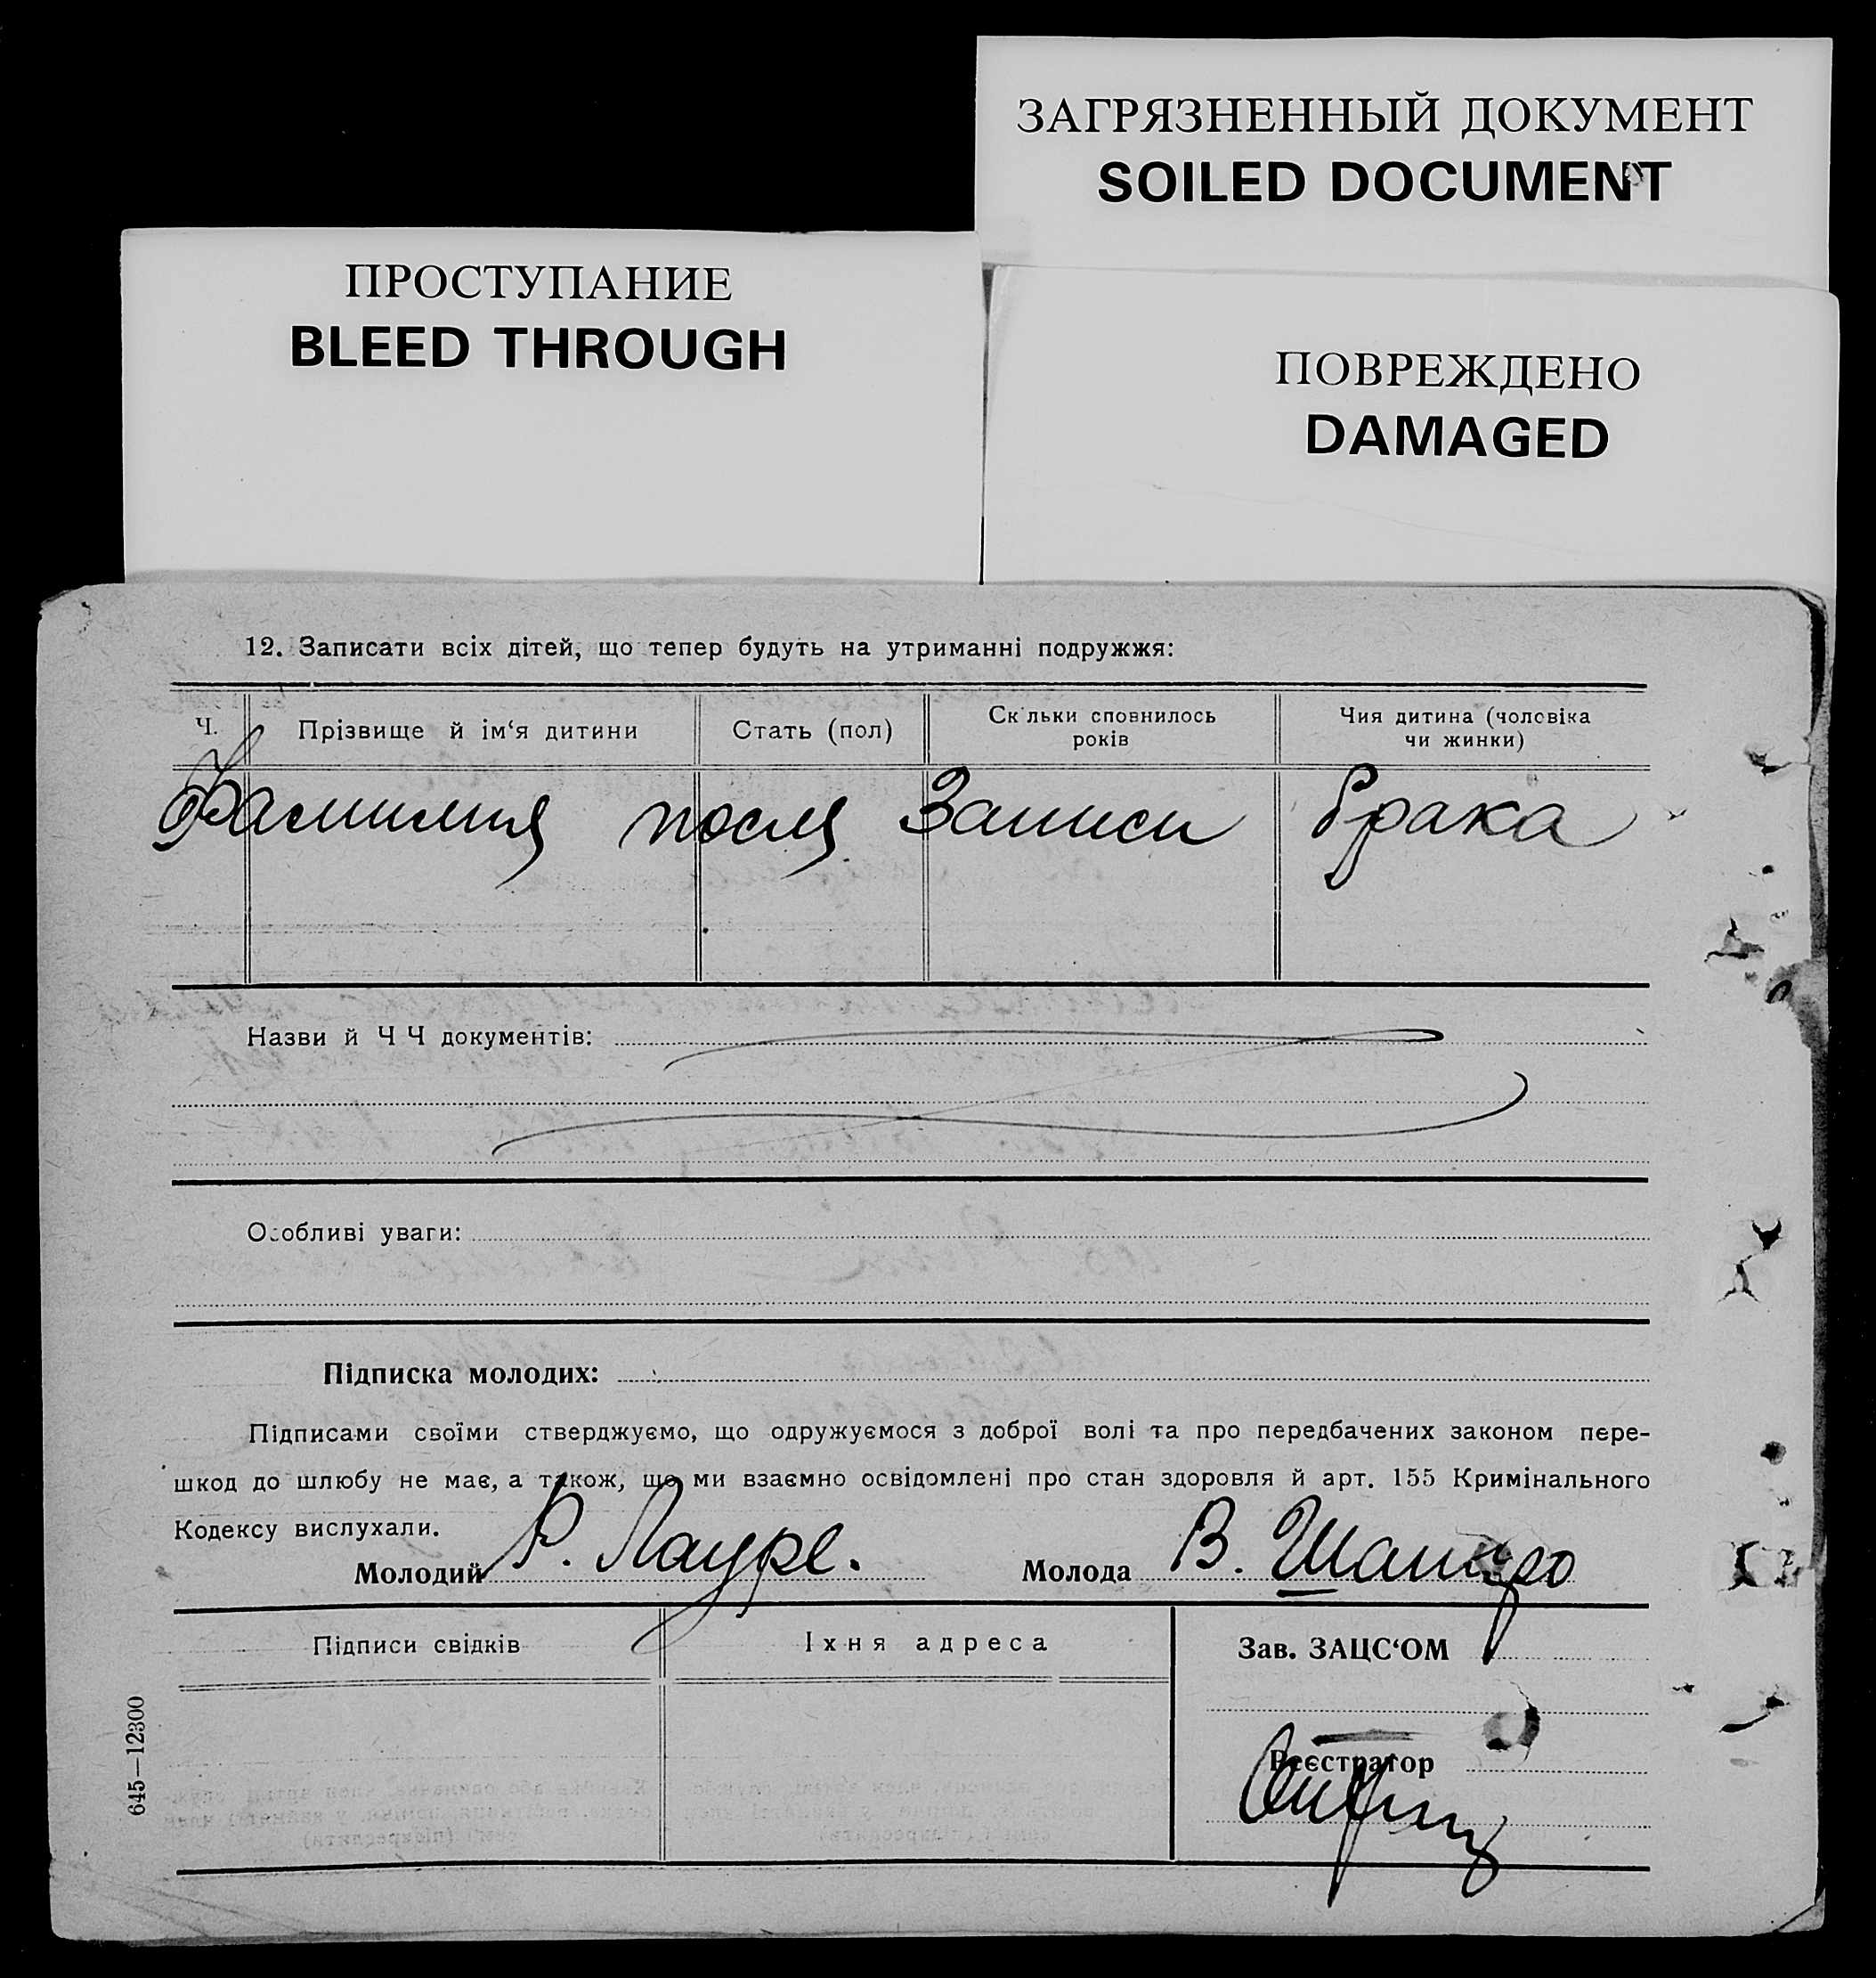 ЗАГРЯЗНЕННЫЙ ДОКУМЕНТ
SOILED DOCUMENT
ПРОСТУПАНИЕ
BLEED THROUGH
ПОВРЕЖДЕНО
DAMAGED
12. Записати всіх дітей, що тепер будуть на утриманні подружжя:
Ч.
Прізвище й ім‘я дитини
Стать (пол)
Ск льки сповнилось
років
Чия дитина (чоловіка
чи жинки)
Фамилия посля Записи брака
Назви й Ч Ч документів:
Особливі уваги:
Підписка молодих:
Підписами своїми стверджуємо, що одружуємося з доброї волі та про передбачених законом пере-
шкод до шлюбу не має, а також, що ми взаємно освідомлені про стан здоровля й арт. 155 Кримінального
Кодексу вислухали.
Молодий Р. Лауре. Молода В. Шапиро
Підписи свідків
Іхня адреса
Зав. ЗАЦС‘ОМ
Реєстратор
645—12300